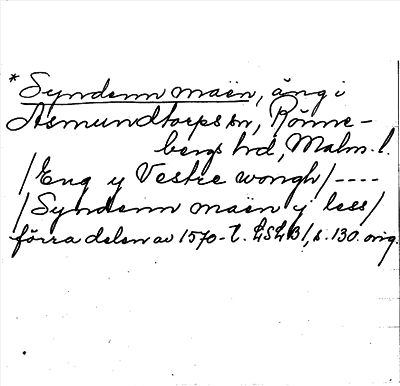 * Syndenn maën, äng i
Asmundtorps sn, Rönne-
bergs hd, Malm. l.
/Eng y Vestre wongh/ ----
/Syndenn maën y less/
förra delen av 1570-t. LSLB1, s. 130. orig.